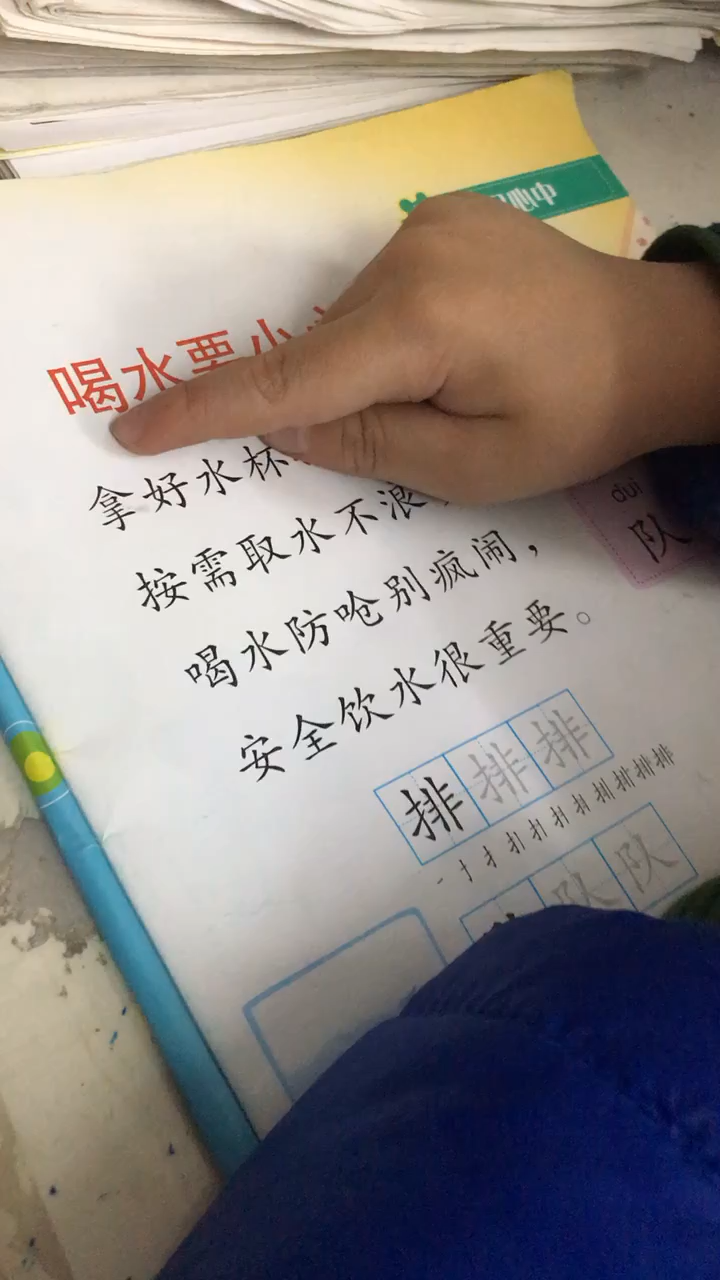 心中
喝水要小
拿好水杯
按需取水不浪
喝水防呛别疯闹，
安全饮水很重要。
duì
队
排排排
排排排
队队